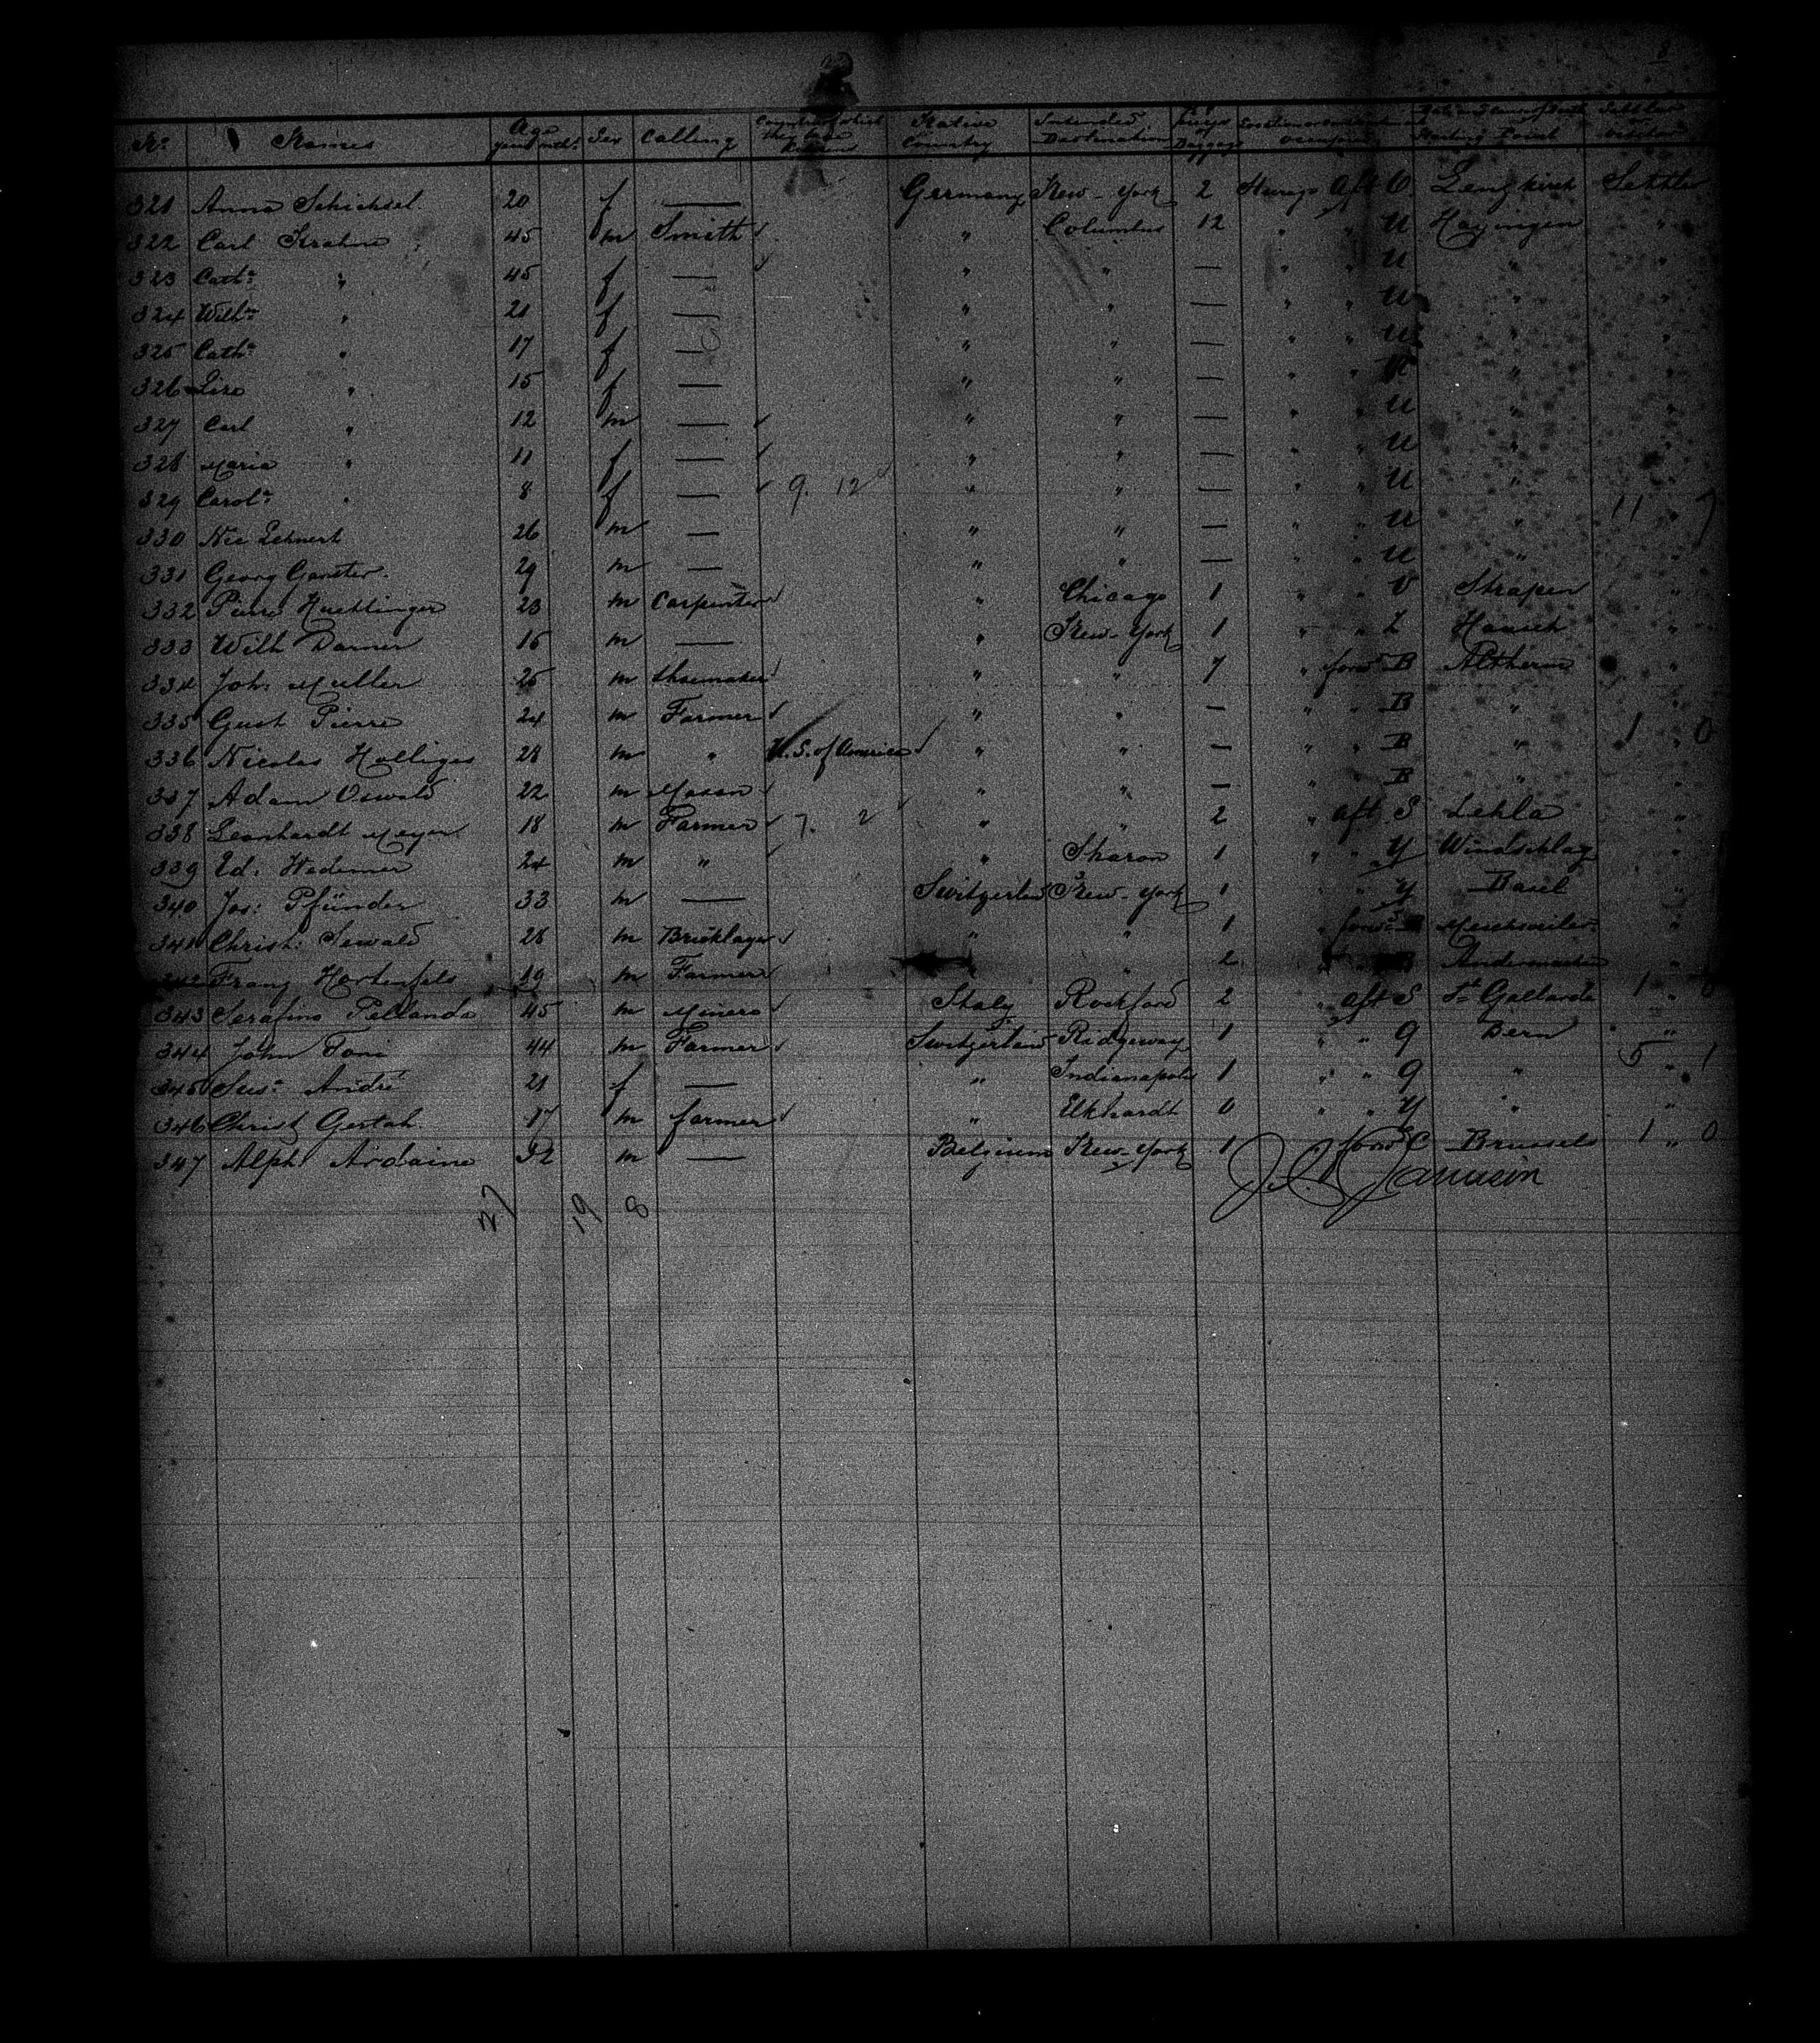 8
No Names Age years mths Sex Calling Country of which they are Native Country Intended Destination Pieces of Baggage Location occupied Starting Point Settler or
321 Anna Schicksel 20 f — Germany New-York 2 Steerage aft O Lenzkirch Settler
322 Carl 45 m Smith " Columbus 12 " " U Hayingen "
323 Cath: " 45 f — " " — " " U " "
324 Wilh: " 21 f — " " — " " U " "
325 Cath: " 17 f — " " — " " U " "
326 Lise " 15 f — " " — " " U " "
327 Carl " 12 m — " " — " " U " "
328 Maria " 11 f — " " — " " U " "
329 Carol: " 8 f — 9. 12 " " — " " U " 11 " 7
330 Nic Lehnert 26 m — " " — " " U " "
331 Georg Ganster 29 m — " " — " " U " "
332 Pierre Huettinger 23 m Carpenter " Chicago 1 " " V Strapen "
333 Wilh Darner 16 m — " New-York 1 " " L "
334 Joh. Muller 25 m Shoemaker " " 7 " forw B Altheim "
335 Gust Pierre 24 m Farmer " " — " " B " "
336 Nicolas Holliger 28 m " U.S. of America " " — " " B " 1 " 0
337 Adam Oswald 22 m Mason " " — " " B " "
338 Leonhardt Meyer 18 m Farmer 7. 2 " " 2 " aft S Lehla "
339 Ed: Wedemer 24 m " " Sharon 1 " " Y Windschlag "
340 Jos: Pfünder 33 m — Switzerland New-York 1 " " Y Basel "
341 Christ: Sewald 28 m Bricklayer " " 1 " forw "
342 Franz Hortenfels 19 m Farmer " " 2 " " B "
343 Serafino Pellanda 45 m Miners Italy Rockford 2 " aft S St Gottardo 1 "
344 John Toni 44 m Farmer Switzerland Ridgeway 1 " " G Bern "
345 Sus: André 21 f — " Indianapolis 1 " " G " 5 " 1
346 Christ Gertah 17 m farmer " Elkhardt 0 " " Y " "
347 Alph: Ardaine 32 m — Belgium New-York 1 " forw C Brussels 1 " 0
27 19 8